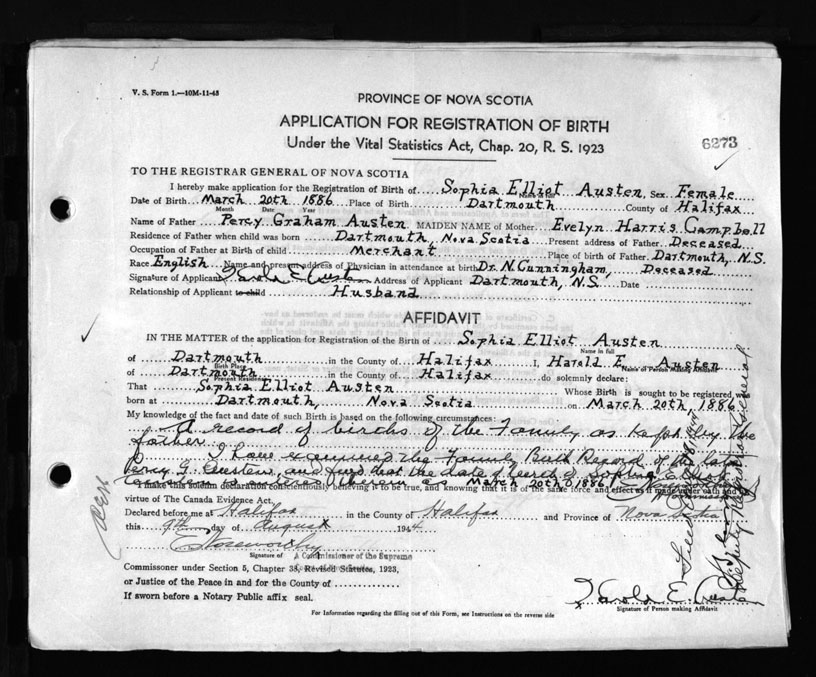 V. S. Form 1.—10M-11-43
PROVINCE OF NOVA SCOTIA
APPLICATION FOR REGISTRATION OF BIRTH
Under the Vital Statistics Act, Chap. 20, R. S. 1923
6273
TO THE REGISTRAR GENERAL OF NOVA SCOTIA
I hereby make application for the Registration of Birth of Sophia Elliot Austen, Sex Female
Date of Birth March 20th 1886 Place of Birth Dartmouth County of Halifax
Month Date Year
Name of Father Percy Graham Austen MAIDEN NAME of Mother Evelyn Harris Campbell
Residence of Father when child was born Dartmouth, Nova Scotia Present address of Father Deceased
Occupation of Father at Birth of child Merchant Place of birth of Father Dartmouth, N.S.
Race English Name and present address of Physician in attendance at birth Dr. N. Cunningham, Deceased
Signature of Applicant Harold E. Austen Address of Applicant Dartmouth, N.S. Date
Relationship of Applicant to child Husband
AFFIDAVIT
IN THE MATTER of the application for Registration of the Birth of Sophia Elliot Austen
Name in full
of Dartmouth in the County of Halifax I, Harold E. Austen
Birth Place Name of Person making Affidavit
of Dartmouth in the County of Halifax do solemnly declare:
Present Residence
That Sophia Elliot Austen Whose Birth is sought to be registered was
born at Dartmouth, Nova Scotia on March 20th, 1886
My knowledge of the fact and date of such Birth is based on the following circumstances:
A record of births of the Family as kept by the
father
I have examined the Family Birth Record of the late
Percy G. Austen, and find that the date of birth of Sophia E.
is entered therein as March 20th 1886
I make this solemn declaration conscientiously believing it to be true, and knowing that it is of the same force and effect as if made under oath and by
virtue of The Canada Evidence Act.
Declared before me at Halifax in the County of Halifax and Province of Nova Scotia
this 9th day of August 1944
E Noseworthy
Signature of A Commissioner of the Supreme
Commissoner under Section 5, Chapter 38, Revised Statutes, 1923,
or Justice of the Peace in and for the County of
If sworn before a Notary Public affix seal.
Harold E. Austen
Signature of Person making Affidavit
For Information regarding the filling out of this Form, see Instructions on the reverse side
Deputy Registrar General